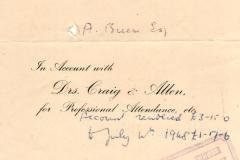 A. Breen Esq
In Account with
Drs. Craig & Allen,
for Professional Attendance, etc.
Account rendered £3-15-0
to July 4th 1948 £1-7-6